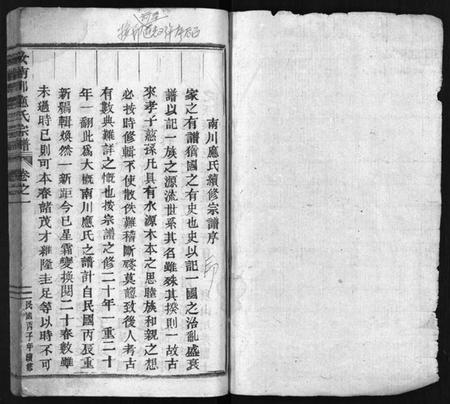 南川應氏續修宗譜序
家之有譜猶國之有史也史以記一國之治亂盛衰
譜以記一族之源流世系其名雖殊其揆則一故古
來孝子慈孫凡具有水源木本之思睦族和親之想
必按時修輯不使散佚難稽斷殘莫證致後人考古
有數典難詳之慨也按宗譜之修二十年一重二十
年一翻此爲大概南川應氏之譜計自民國丙辰重
新編輯煥然一新距今已星霜變換閱二十春數雖
未過時已則可本春諸茂才雜隆圭足等以時不可
汝南郡應氏宗譜
卷之一
民國丙子年續修